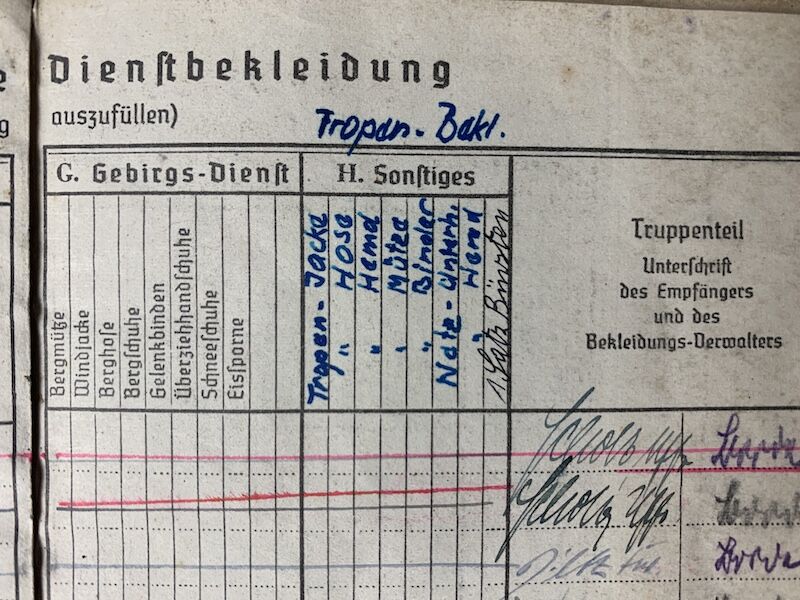 Dienstbekleidung
auszufüllen)
Tropen-Bekl.
G. Gebirgs-Dienst
H. Sonstiges
Bergmütze
Windjacke
Berghose
Bergschuhe
Gelenkbinden
Überziehhandschuhe
Schneeschuhe
Eissporne
Tropen-Jacke
" Hose
" Hemd
" Mütze
" Binder
Netz-Unterh.
" Hemd
1 Satz Bürsten
Truppenteil
Unterschrift
des Empfängers
und des
Bekleidungs-Verwalters